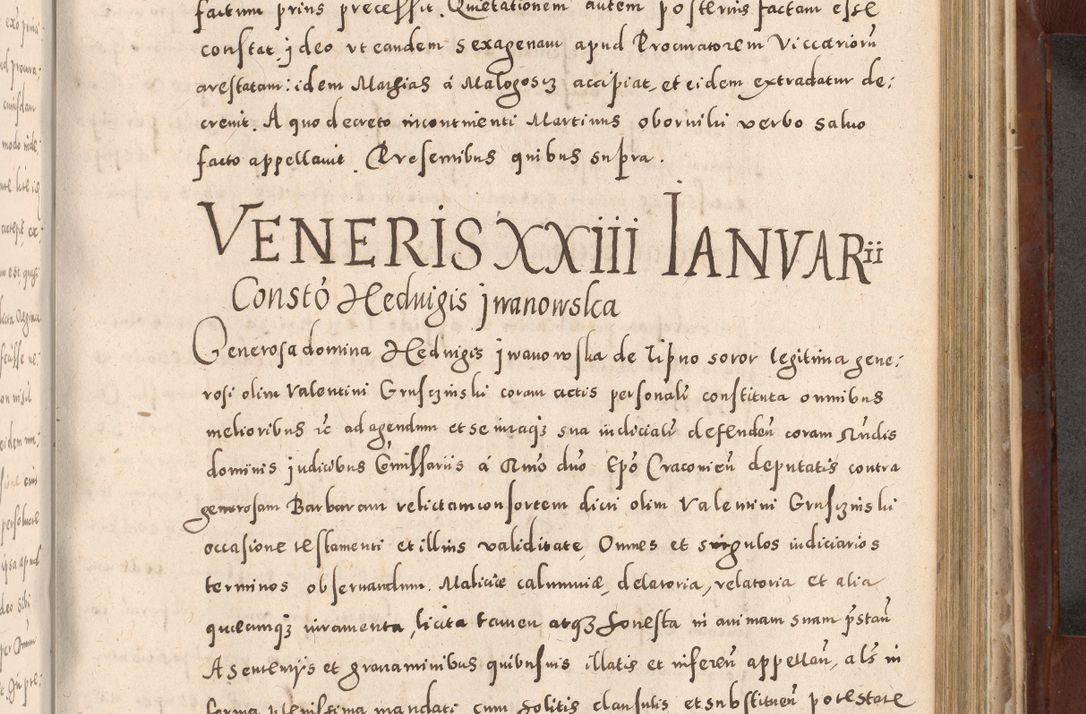 factum prius precessit. Quietationem autem posterius factam esse
constat. jdeo vt eandem sexagenam apud Procuratorem Viccariorū
arestatam: idem Mathias á Malogoscz accipiat, et eidem extradatur de:
creuit. A quo decreto incontinenti Martinus obornihi verbo saluo
facto appellauit. Presentibus quibus supra.
VENERIS XXIII IANVARii
Constō Heduigis jwanowska
Generosa domina Heduigis jwanowska de Lipno soror legitima gene:
rosi olim Valentini Gruscziński coram actis personalī constituta omnibus
melioribus ꝛc ad agendum et se iuraqꝫ sua iudicialī defendeñ coram Rñdis
dominis judicibus Comissariis á Rmo dño Epō Cracovieñ deputatis contra
generosam Barbaram relictam consortem dicti olim Valentini Gruscziński
occasione testamenti et illius validitate, Omnes et singulos iudiciarios
terminos obseruandum. Maliciæ calumniæ, delatoria, relatoria et alia
quæcumqꝫ iuramenta, licita tamen atqꝫ honesta in animam suam p̄stañ
A sentenijs et grauaminibus quibusuis illatis et infereñ appellañ, als in
forma plenissima mandati cum solitis clausulis et substitueñ potestate